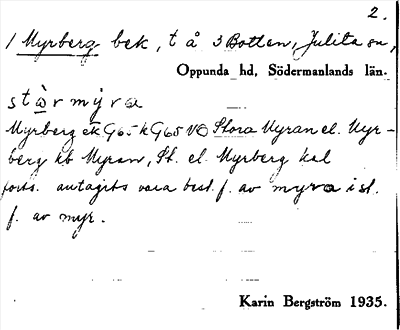 2.
1 Myrberg bek, t å 3 Botten, Julita sn,
Oppunda hd, Södermanlands län.
stàrmýra
Myrberg ek G65 k G65 NO Stora Myran el. Myr-
berg kb Myran, St. el. Myrberg kal
forts. antagits vara best. f. av myra i st.
f. av myr.
Karin Bergström 1935.